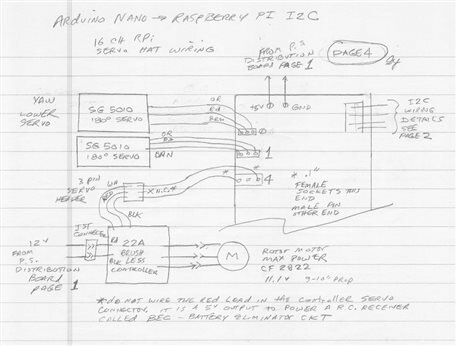 ARDUINO NANO → RASPBERRY PI I2C
16 CH RPi
SERVO HAT WIRING
FROM P.S.
DISTRIBUTION
BOARD PAGE 1
PAGE 4
YAW
LOWER
SERVO
SG 5010
180° SERVO
OR
RD
BRN
+5V
GND
I2C
WIRING
DETAILS
SEE
PAGE 2
0
SG 5010
180° SERVO
OR
RD
BRN
1
3 PIN
SERVO
HEADER
WH
RED
X N.C.*
BLK
4
* .1"
FEMALE
SOCKETS THIS
END
MALE PIN
OTHER END
JST
CONNECTOR
12V
FROM
P.S.
DISTRIBUTION
BOARD
PAGE 1
RD
BLK
22A
BRUSH
LESS
CONTROLLER
M
ROTOR MOTOR
MAX POWER
CF 2822
11.1V 9-10" PROP
*DO NOT WIRE THE RED LEAD IN THE CONTROLLER SERVO
CONNECTOR, IT IS A 5V OUTPUT TO POWER A R.C. RECEIVER
CALLED BEC - BATTERY ELIMINATOR CKT